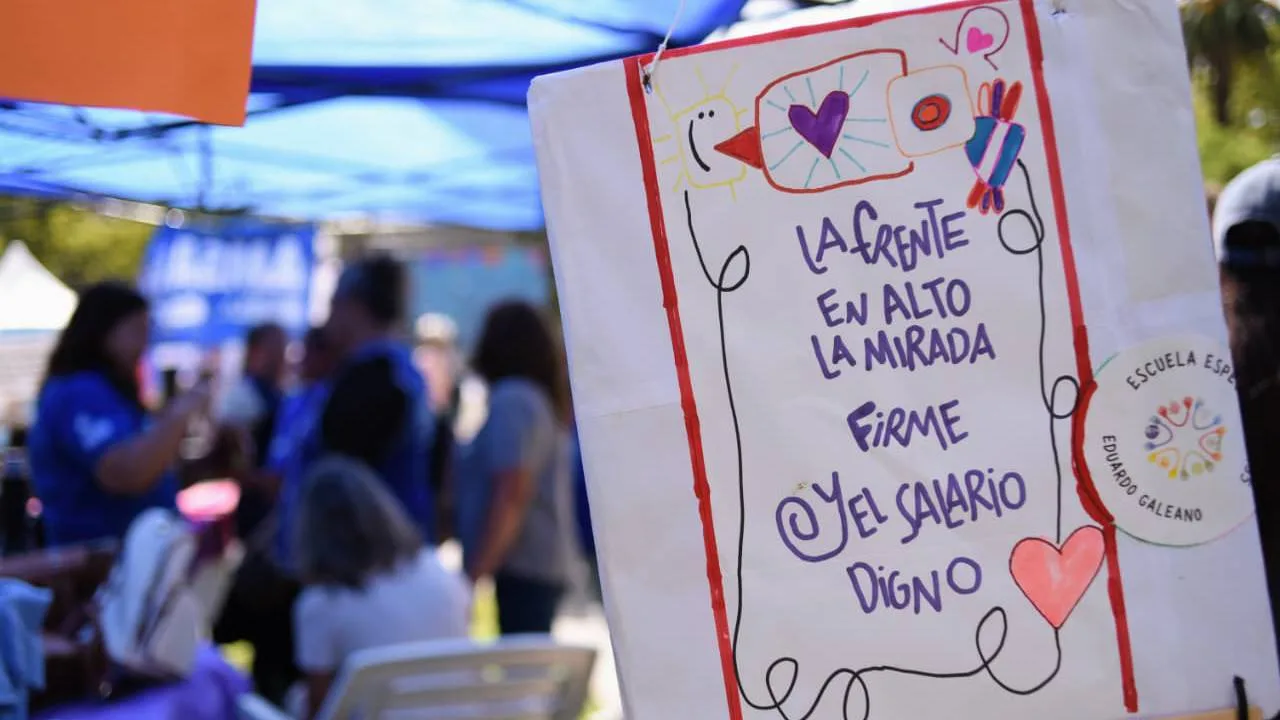 LA FRENTE
EN ALTO
LA MIRADA
FIRME
Y EL SALARIO
DIGNO
ESCUELA
EDUARDO GALEANO